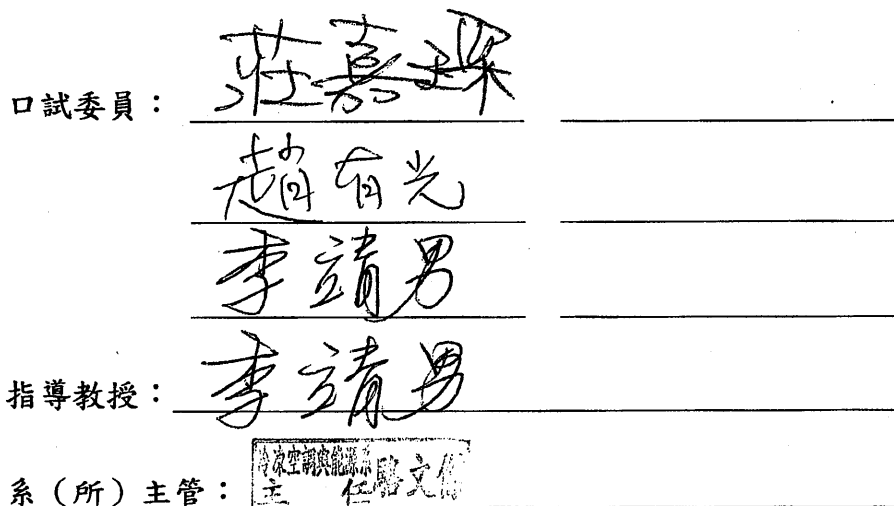 口試委員：莊嘉琛
趙有光
李靖男
指導教授：李靖男
系（所）主管：冷凍空調與能源系
主任 駱文傑